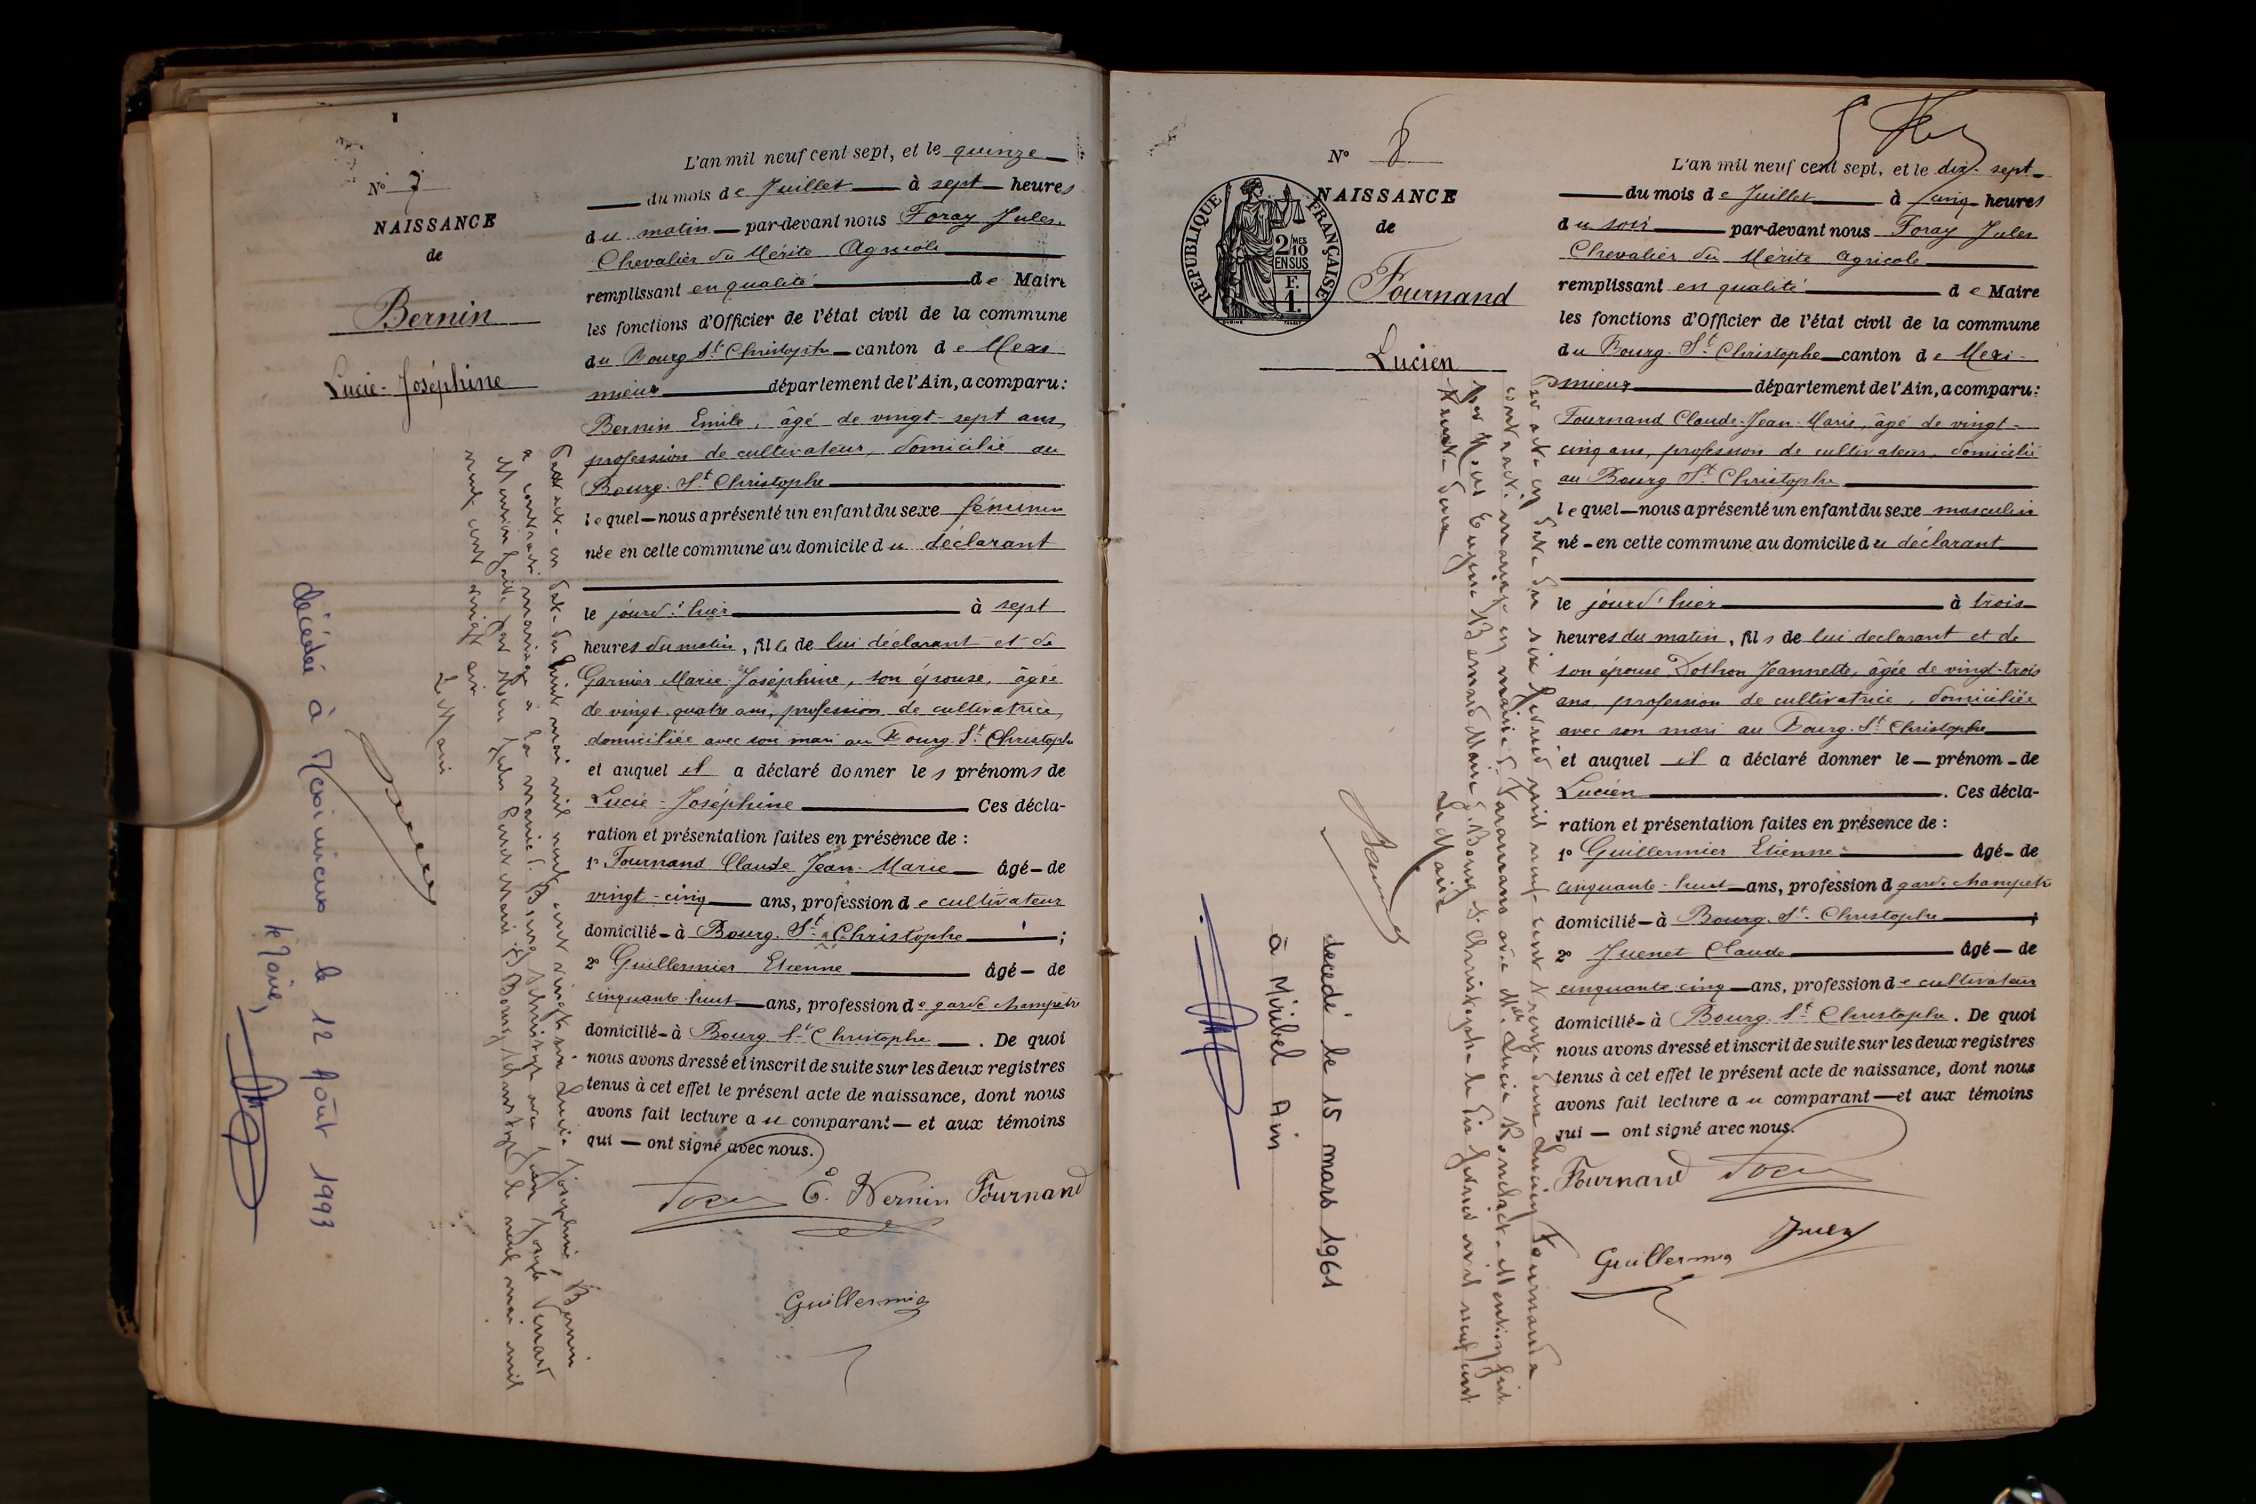 N° 7
NAISSANCE
de
Bernin
Lucie-Joséphine
L'an mil neuf cent sept, et le quinze
du mois de Juillet à sept heures
du matin par-devant nous Foray Jules
Chevalier du Mérite Agricole
remplissant en qualité de Maire
les fonctions d'Officier de l'état civil de la commune
du Bourg St Christophe canton de Mexi
mieux département de l'Ain, a comparu:
Bernin Emile, âgé de vingt-sept ans,
profession de cultivateur, domicilié au
Bourg-St Christophe
lequel nous a présenté un enfant du sexe féminin
née en cette commune au domicile du déclarant
le jourd'hier à sept
heures du matin, fille de lui déclarant et de
Garnier Marie-Joséphine, son épouse, âgée
de vingt-quatre ans, profession de cultivatrice,
domiciliée avec son mari au Bourg-St Christophe
et auquel il a déclaré donner les prénoms de
Lucie-Joséphine Ces décla-
ration et présentation faites en présence de :
1° Fournand Claude Jean-Marie âgé de
vingt-cinq ans, profession de cultivateur
domicilié à Bourg-St-Christophe ;
2° Guillermier Etienne âgé de
cinquante-huit ans, profession de garde champêtre
domicilié à Bourg-St Christophe. De quoi
nous avons dressé et inscrit de suite sur les deux registres
tenus à cet effet le présent acte de naissance, dont nous
avons fait lecture au comparant et aux témoins
qui ont signé avec nous.
Foray E. Bernin Fournand
Guillermier
Par acte en date du huit mai mil neuf cent vingt six Lucie Joséphine Bernin
a contracté mariage à la mairie de Bourg St Christophe avec Jean Joseph Venard
Mention faite par Nous Maire de Bourg St Christophe le neuf mai mil
neuf cent vingt six
Le Maire
décédée à Meximieux le 12 Août 1993
le Maire,
N° 8
NAISSANCE
de
Fournand
Lucien
RÉPUBLIQUE FRANÇAISE
2/10 MES
EN SUS
F.
1.
L'an mil neuf cent sept, et le dix-sept
du mois de Juillet à cinq heures
du soir par-devant nous Foray Jules
Chevalier du Mérite Agricole
remplissant en qualité de Maire
les fonctions d'Officier de l'état civil de la commune
du Bourg-St Christophe canton de Mexi-
mieux département de l'Ain, a comparu:
Fournand Claude-Jean-Marie, âgé de vingt-
cinq ans, profession de cultivateur, domicilié
au Bourg St Christophe
lequel nous a présenté un enfant du sexe masculin
né en cette commune au domicile du déclarant
le jourd'hier à trois
heures du matin, fils de lui déclarant et de
son épouse Dothon Jeannette, âgée de vingt-trois
ans, profession de cultivatrice, domiciliée
avec son mari au Bourg-St Christophe
et auquel il a déclaré donner le prénom de
Lucien. Ces décla-
ration et présentation faites en présence de :
1° Guillermier Etienne âgé de
cinquante-huit ans, profession d garde champêtre
domicilié à Bourg-St-Christophe ;
2° Juenet Claude âgé de
cinquante cinq ans, profession de cultivateur
domicilié à Bourg-St Christophe. De quoi
nous avons dressé et inscrit de suite sur les deux registres
tenus à cet effet le présent acte de naissance, dont nous
avons fait lecture au comparant et aux témoins
qui ont signé avec nous.
Fournand Foray
Guillermier Juenet
Par acte en date du six février mil neuf cent trente deux Lucien Fournand a
contracté mariage en mairie de avec Melle Lucie Mention faite
par Nous Eugène Bernard Maire de Bourg St Christophe le dix février mil neuf cent
trente-deux
Le Maire
décédé le 15 mars 1961
à Miribel Ain